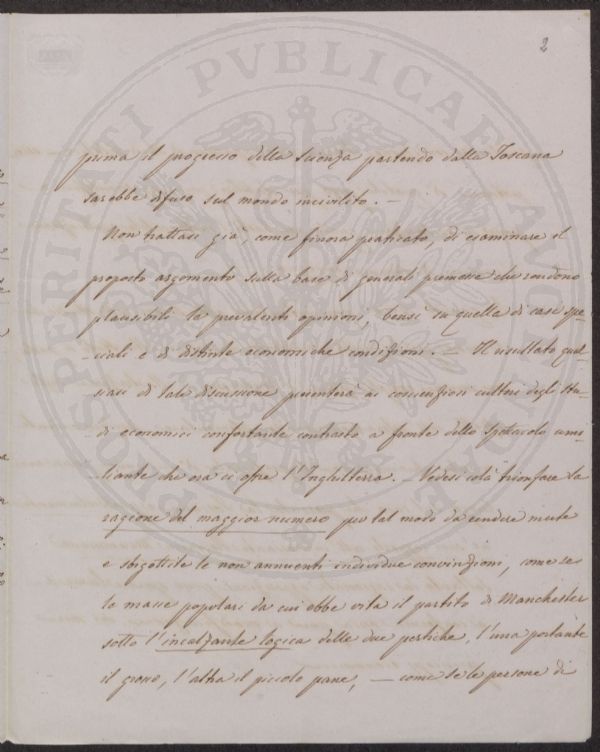 2
prima il progresso della scienza partendo dalla Toscana
sarebbe difuso sul mondo incivilito. —
Non trattasi già, come finora praticato, di esaminare il
proposto argomento sulla base di generali premesse che rendono
plausibili le prevalenti opinioni, bensì su quella di casi spe-
-ciali e di distinte economiche condizioni. — Il risultato qual-
siasi di tale discussione presenterà ai coscienziosi cultori degli stu-
-di economici confortante contrasto a fronte dello spettacolo umi-
liante che ora ci offre l'Inghilterra. — Vedesi colà trionfare la
ragione del maggior numero per tal modo da rendere mute
e sbigottite le non annuenti individue convinzioni, come se
le masse popolari da cui ebbe vita il partito di Manchester
sotto l'incalzante logica delle due pertiche, l'una portante
il grosso, l'altra il piccolo pane, — come se le persone di
PROSPERITATI PVBLICAE AVGENDAE